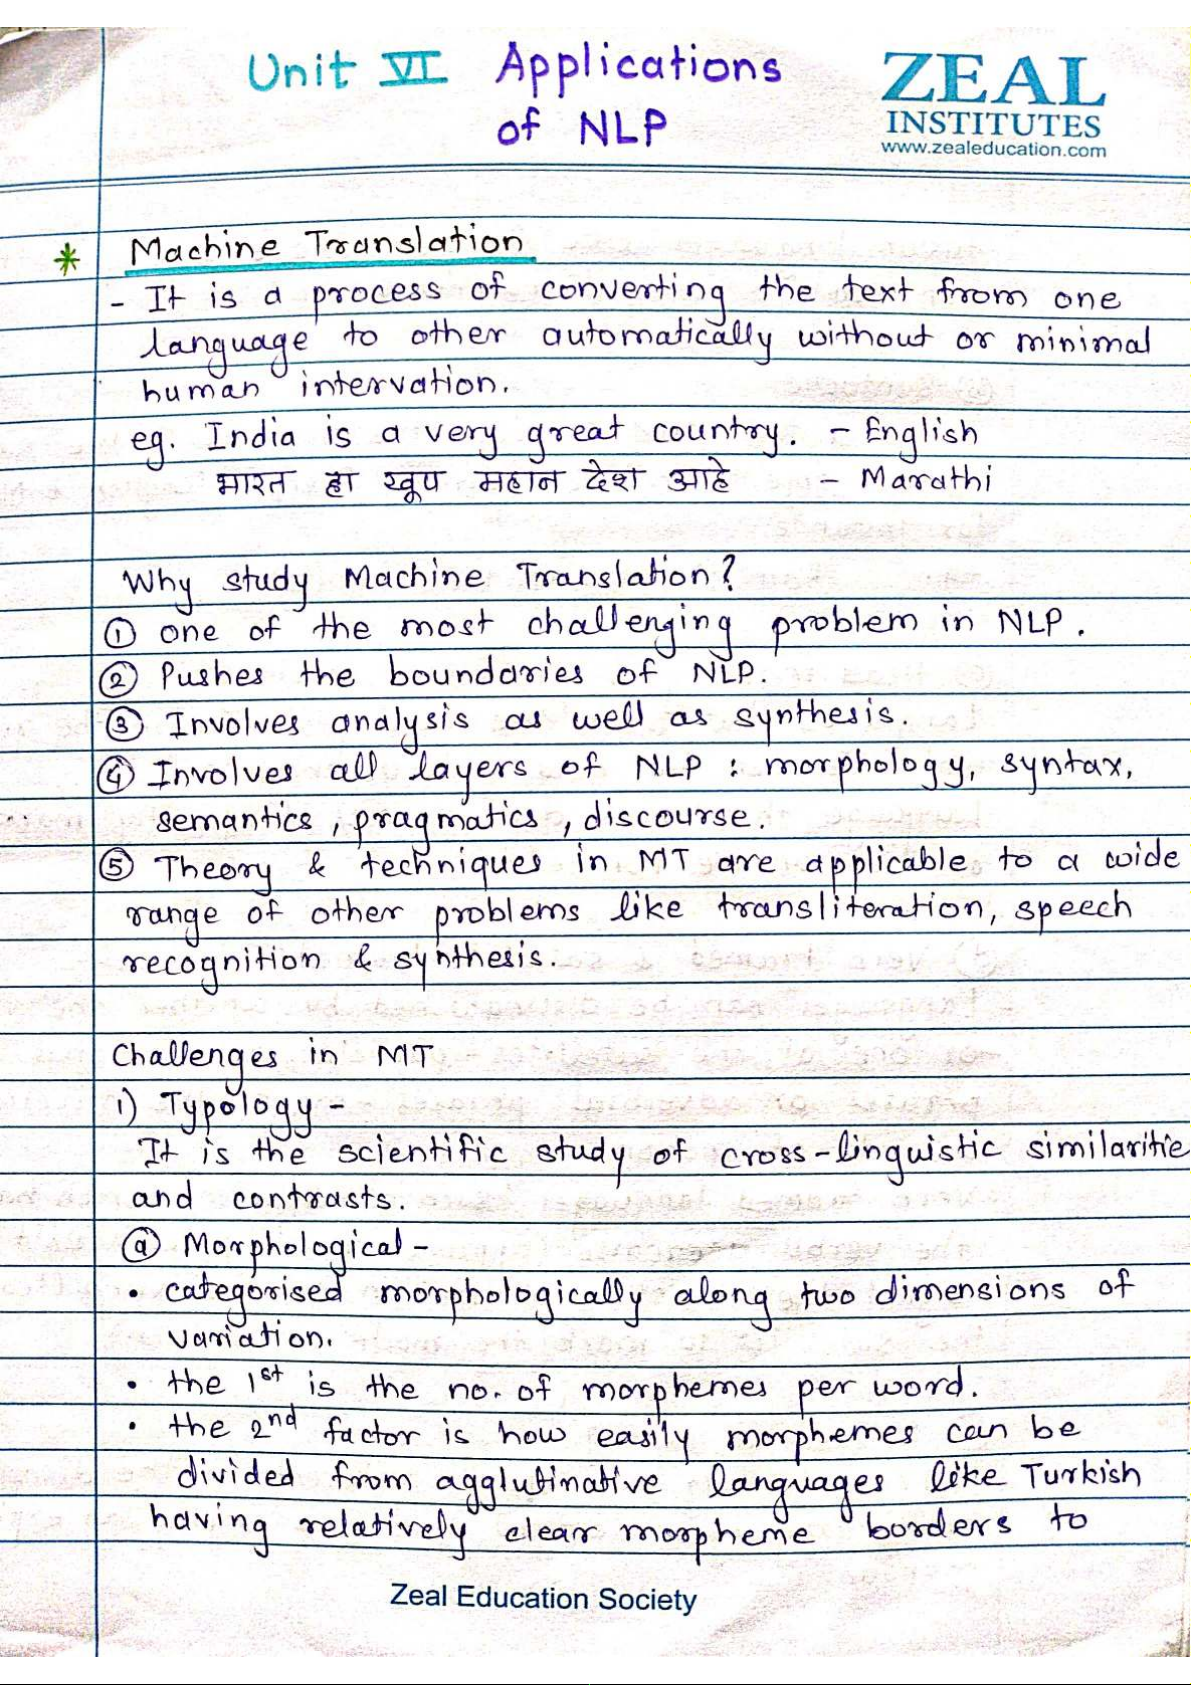 Unit VI Applications
of NLP
ZEAL
INSTITUTES
www.zealeducation.com
* Machine Translation
- It is a process of converting the text from one
language to other automatically without or minimal
human intervation.
eg. India is a very great country. - English
भारत हा खूप महान देश आहे - Marathi
Why study Machine Translation?
① one of the most challenging problem in NLP.
② Pushes the boundaries of NLP.
③ Involves analysis as well as synthesis.
④ Involves all layers of NLP : morphology, syntax,
semantics, pragmatics, discourse.
⑤ Theory & techniques in MT are applicable to a wide
range of other problems like transliteration, speech
recognition & synthesis.
Challenges in MT
i) Typology -
It is the scientific study of cross-linguistic similaritie
and contrasts.
ⓐ Morphological -
• categorised morphologically along two dimensions of
variation.
• the 1st is the no. of morphemes per word.
• the 2nd factor is how easily morphemes can be
divided from agglutinative languages like Turkish
having relatively clear morpheme borders to
Zeal Education Society